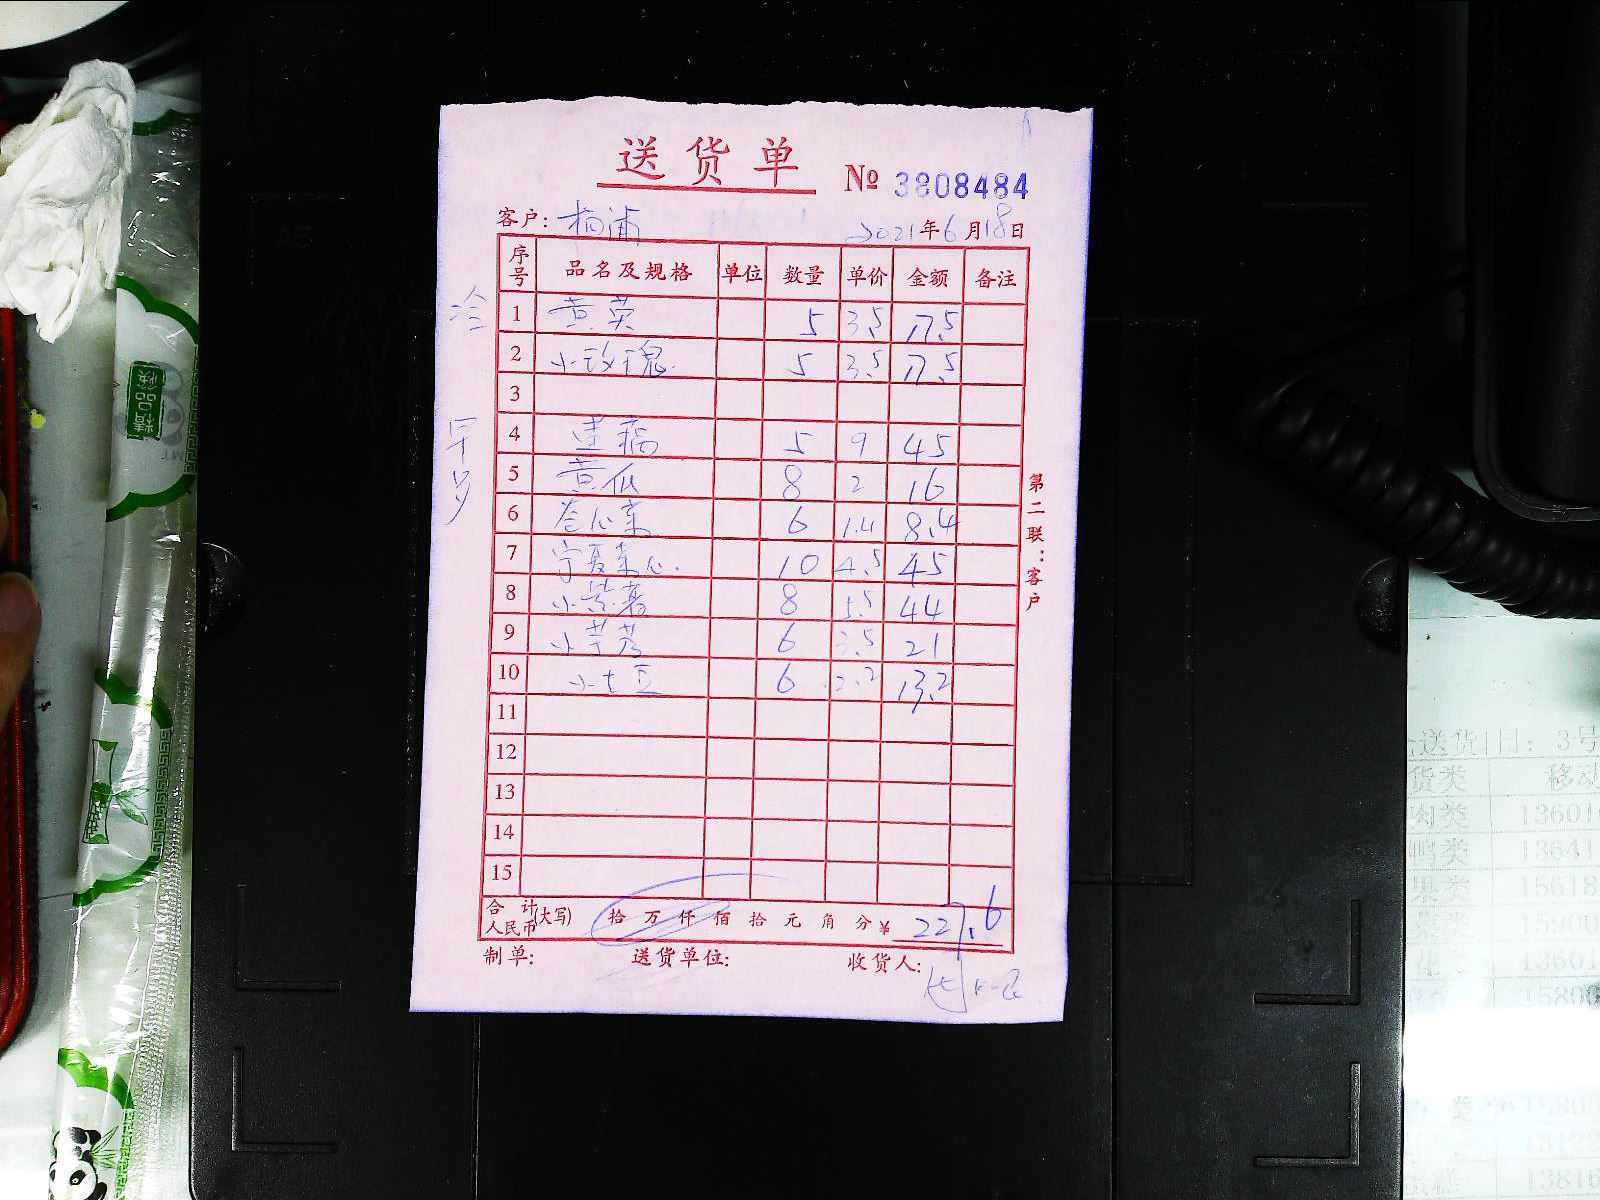 送货单
№ 3808484
客户: 柏浦 2021年6月18日
序号 品名及规格 单位 数量 单价 金额 备注
冷
1 黄英 5 3.5 17.5
2 小玫瑰 5 3.5 17.5
3
早
4 5 9 45
5 黄瓜 8 2 16
6 卷心菜 6 1.4 8.4
7 宁夏菜心 10 4.5 45
8 小紫薯 8 5.5 44
9 小芋艿 6 3.5 21
10 小土豆 6 2.2 13.2
11
12
13
14
15
合计人民币(大写) 拾万仟佰拾元角分¥ 227.6
制单: 送货单位: 收货人:
第二联:客户
精品筷
送货 日: 3号
货类 移动
肉类 13601
鸭类 13641
果类 15618
15900
1360
15800
类 15800
13122
蛋糕 13816